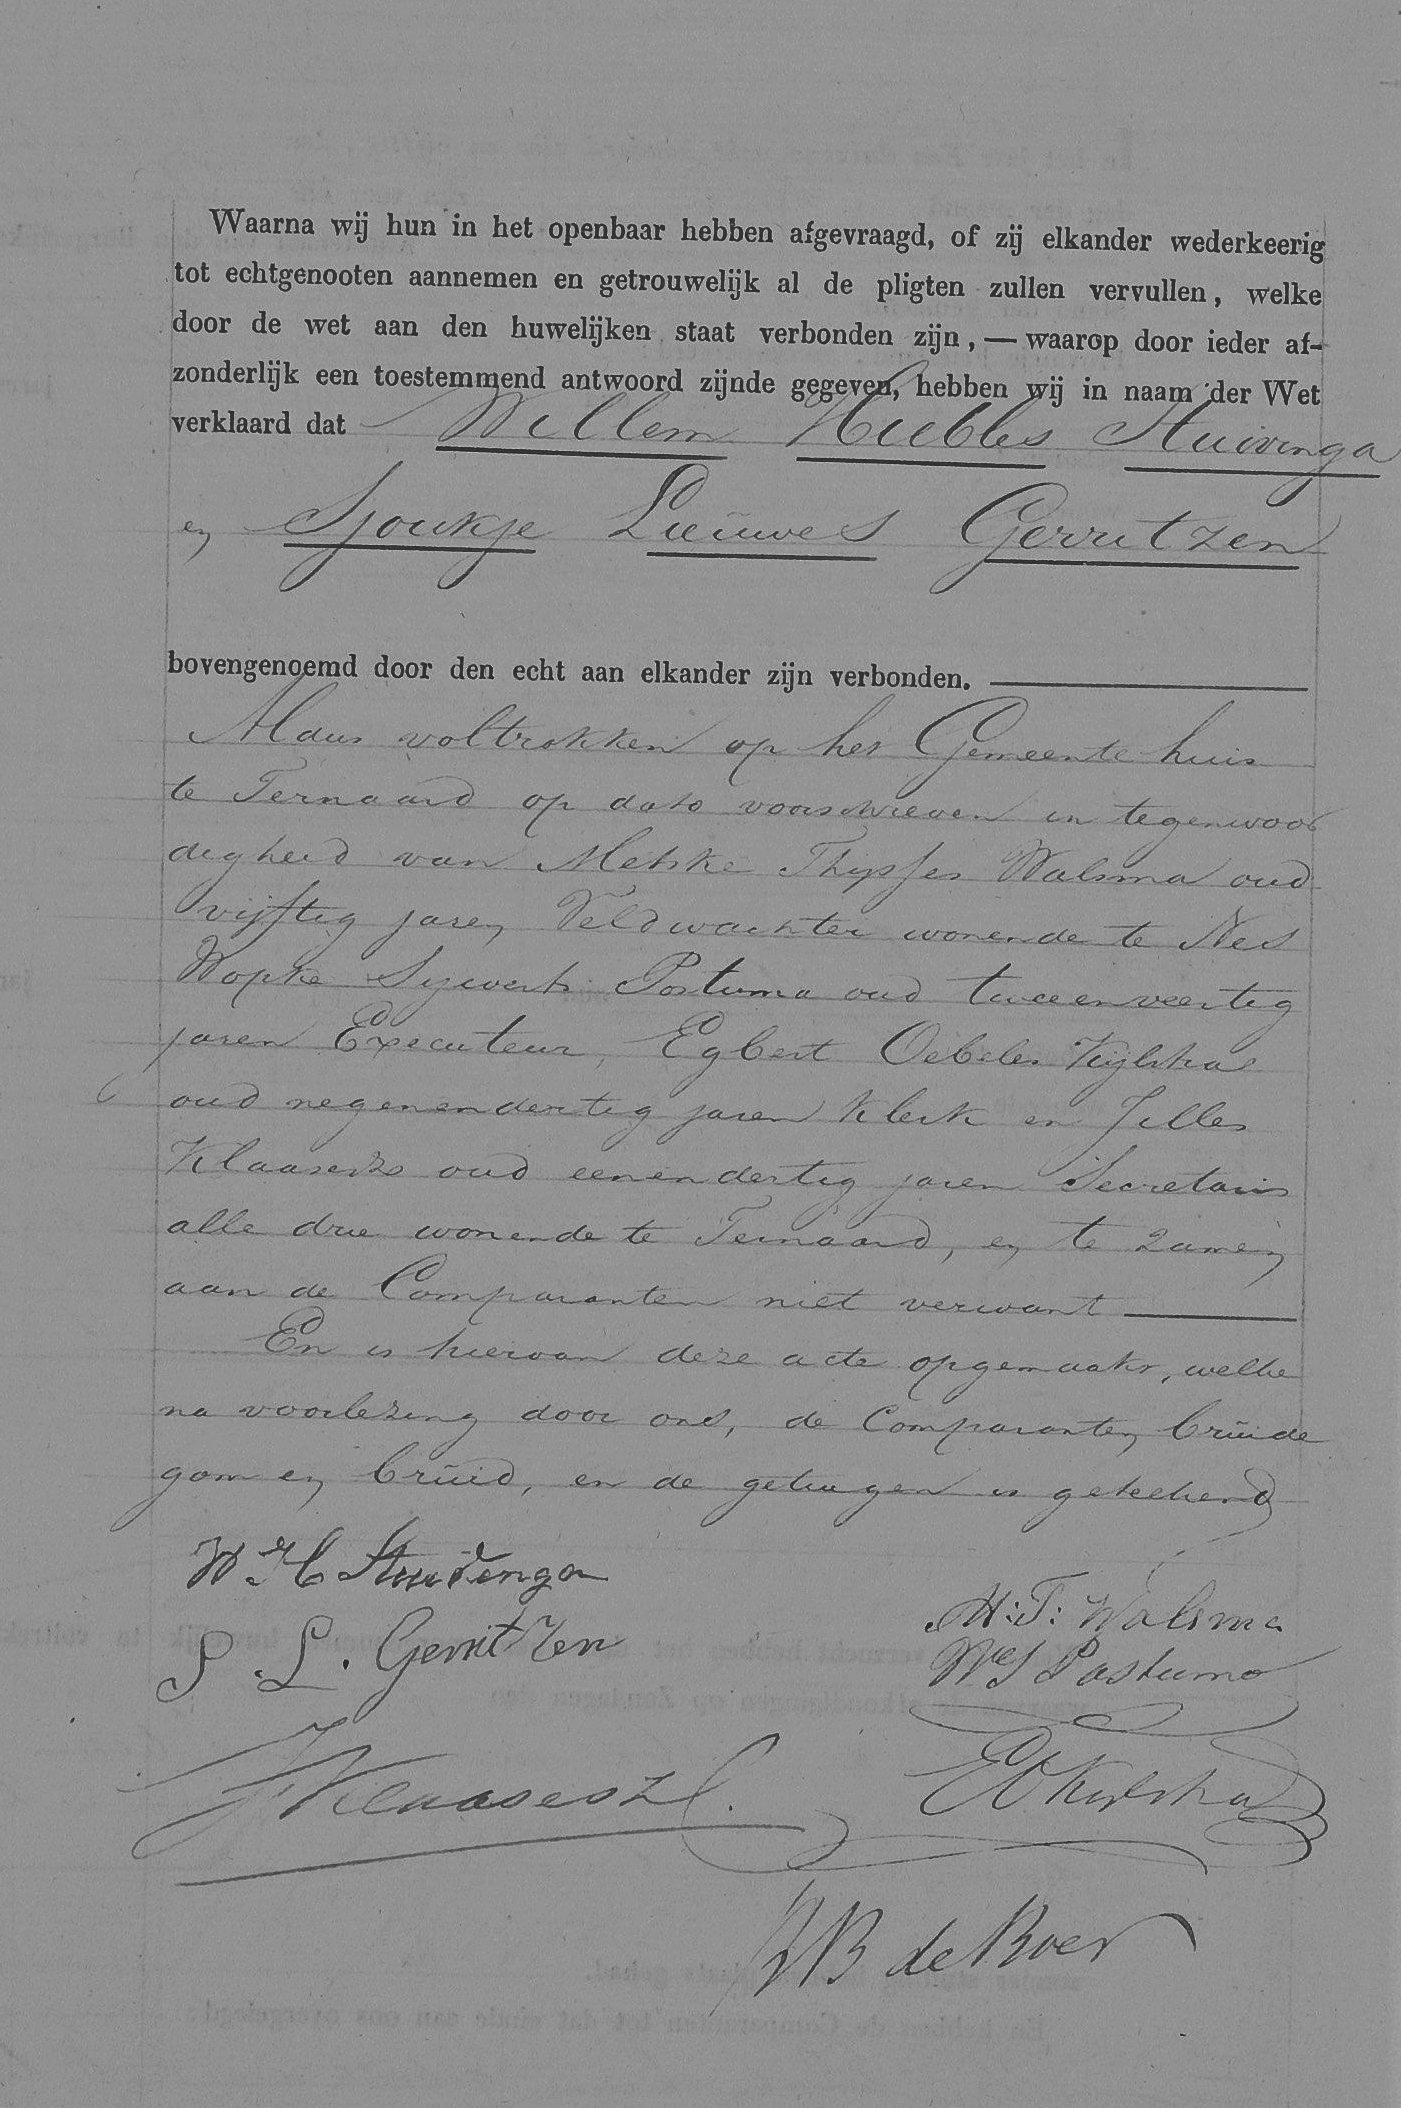 Waarna wij hun in het openbaar hebben afgevraagd, of zij elkander wederkeerig
tot echtgenooten aannemen en getrouwelijk al de pligten zullen vervullen, welke
door de wet aan den huwelijken staat verbonden zijn, — waarop door ieder af-
zonderlijk een toestemmend antwoord zijnde gegeven, hebben wij in naam der Wet
verklaard dat Willem Huebles Stuivinga
en Sjoukje Lieuwes Gerritzen
bovengenoemd door den echt aan elkander zijn verbonden.
Aldus voltrokken op het Gemeente huis
te Ternaard op dato voorschreven in tegenwoor
digheid van Metske Thijsses Walsma oud
vijftig jaren Veldwachter wonende te Nes
Wopke Sijwerts Postuma oud tweeenveertig
jaren Executeur, Egbert Oebeles Kijlstra
oud negenendertig jaren Klerk en Jilles
Klaasesz oud eenendertig jaren Secretaris
alle drie wonende te Ternaard, en te zamen
aan de Comparanten niet verwant
En is hiervan deze acte opgemaakt, welke
na voorlezing door ons, de Comparanten bruide
gom en bruid, en de getuigen is geteekend
W H Stuivenga
S. L. Gerritzen
M: T: Walsma
W S Postuma
J Klaasesz
EO Kijlstra
B de Boer